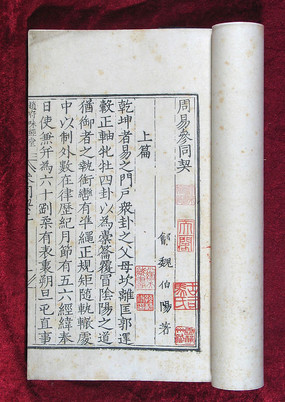 周易參同契
魏伯陽著
上篇
乾坤者易之門戶衆卦之父母坎離匡郭運
轂正軸牝牡四卦以爲橐籥覆冒陰陽之道
猶御者之執銜轡有準繩正規矩隨軌轍處
中以制外數在律歷紀月節有五六經緯奉
日使兼并爲六十剛柔有表裏朔旦屯直事